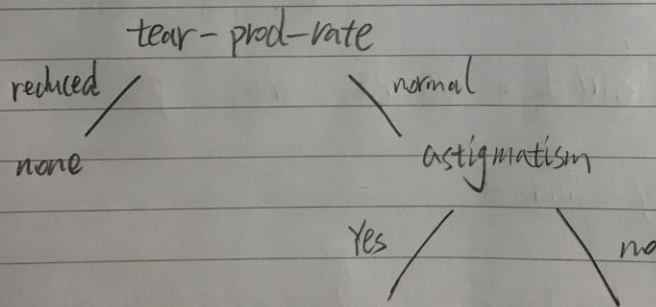 tear-prod-rate
reduced normal
none astigmatism
Yes no